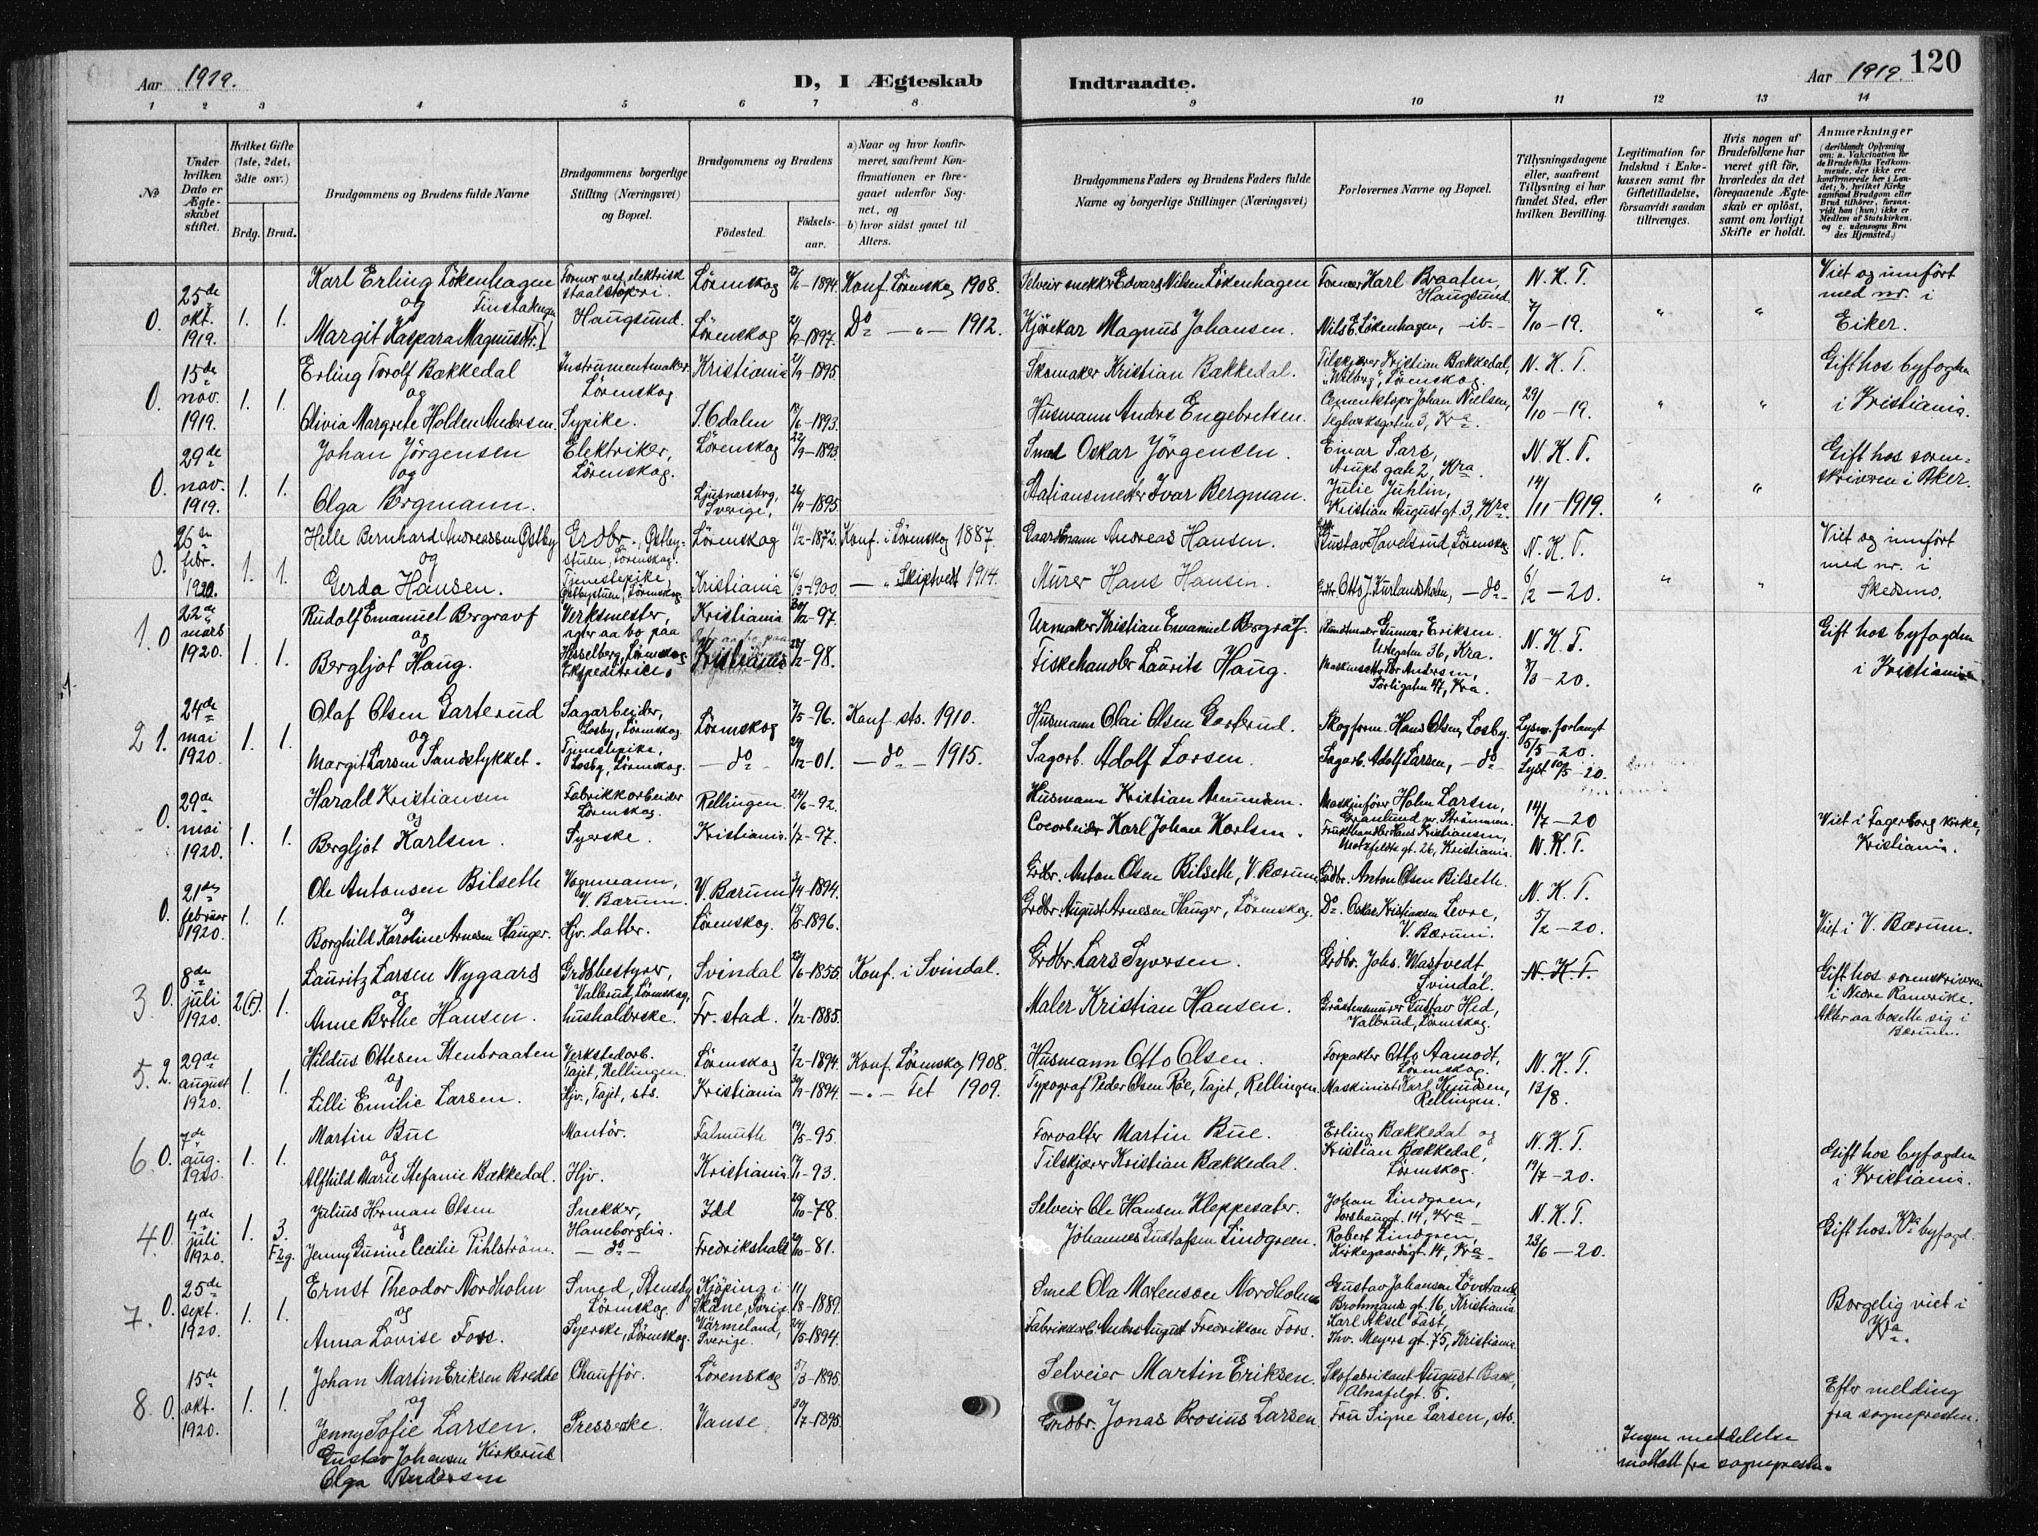 Aar 1919.
D, I Ægteskab
Indtraadte.
Aar 1919.
120
1 2 3 4 5 6 7 8 9 10 11 12 13 14
No
Under hvilken Dato er Ægteskabet stiftet.
Hvilket Gifte (1ste, 2det, 3dte osv.)
Brdg. Brud.
Brudgommens og Brudens fulde Navne
Brudgommens borgerlige Stilling (Næringsvei) og Bopæl.
Brudgommens og Brudens
Födested.
Födselsaar.
a) Naar og hvor konfirmeret, saafremt Konfirmationen er foregaaet udenfor Sognet, og
b) hvor sidst gaaet til Alters.
Brudgommens Faders og Brudens Faders fulde Navne og borgerlige Stillinger (Næringsvei)
Forlovernes Navne og Bopæl.
Tillysningsdagene eller, saafremt Tillysning ei har fundet Sted, efter hvilken Bevilling.
Legitimation for Indskud i Enkekassen samt for Giftetilladelse, forsaavidt saadan tiltrænges.
Hvis nogen af Brudefolkene har været gift før, hvorledes da det foregaaende Ægteskab er oplöst, samt om lovligt Skifte er holdt.
Anmærkninger (deriblandt Oplysning om: a. Vakcination for de Brudefolks Vedkommende, der ikke ere konfirmerede her i Landet; b. hvilket Kirkesamfund Brudgom eller Brud tilhörer, forsaavidt han (hun) ikke er Medlem af Statskirken, og c. udensogns Brudes Hjemsted.)
0. 25de okt. 1919. 1. 1.
Karl Erling Løkenhagen
og
Margit Kaspara Magnusdtr.
Former ved elektrisk staalstøperi. Haugsund.
Lørenskog 1894. Konf. Lørenskog 1908.
Lørenskog 1897. Do —"— 1912.
Selveier snekker Edvard Nilsen Løkenhagen
Kjørekar Magnus Johansen.
Former Karl Braaten, Haugsund
Nils E. Løkenhagen, —ib—
N. K. T. 7/10–19.
" "
Viet og innført med nr. i Eiker.
0. 15de nov. 1919. 1. 1.
Erling Torolf Bækkedal
og
Olivia Margrete Holden Andersen.
Instrumentmaker Lørenskog
Sypike.
Kristiania 1895.
S. Odalen 1893.
Skomaker Kristian Bækkedal.
Husmann Andrs Engebretsen.
Tilskjærer Kristian Bækkedal, Lørenskog.
Johan Nielsen, Teglverksgaten 3, Kra.
N. K. T. 29/10–19.
" "
Gift hos byfogden i Kristiania.
0. 29de nov. 1919. 1. 1.
Johan Jörgensen
og
Olga Bergmann.
Elektriker, Lørenskog.
Lørenskog 1893
Ljusnarsberg, Sverige, 1895.
Smed Oskar Jörgensen.
Stationsmester Ivar Bergman.
Einar Sars, Arups gate 2, Kra
Julie Juhlin, Kristian August gt. 3, Kra.
N. K. T. 14/11–1919.
" "
Gift hos sorenskriveren i Aker.
0. 26de febr. 1920. 1. 1.
Helle Bernhard Andreassen Østby
og
Gerda Hansen.
Lørenskog.
Tjenestepike, Østbystuen, Lørenskog
Lørenskog 11/2–1872. Konf. i Lørenskog 1887.
Kristiania 1900. —"— Skiptvedt 1914.
Gaardmann Andreas Hansen.
Murer Hans Hansen.
Gustav Havelsrud, Lørenskog
Otto J. Kurlandsholen, —do—
N. K. T. 6/2–20.
" "
Viet og innført med nr. i Skedsmo.
1. 0 22de mars 1920. 1. 1.
Rudolf Emanuel Bergrav
og
Bergljot Haug.
Verksmester, agter aa bo paa Hesselberg, Lørenskog
Ekspeditrise.
Kristiania –97.
Kristiania –98.
Urmaker Kristian Emanuel Bergrav.
Fiskehandler Laurits Haug.
Gunnar Eriksen. Urtegaten 36, Kra.
Andersen, Sörligaten 47, Kra.
N. K. T. 8/3–20.
Gift hos byfogden i Kristiania
2 1. 24de mai 1920. 1. 1.
Olaf Olsen Garterud
og
Margit Larsen Sandstykket.
Sagarbeider, Losby, Lørenskog.
Tjenestepike, Losby, Lørenskog.
Lørenskog 7/5–96. Konf. sts. 1910.
—do— –01. —do— 1915.
Husmann Olai Olsen Garterud.
Sagarb. Adolf Larsen.
Skogform. Hans Olsen, Losby.
Sagarb. Adolf Larsen, —do—
Lysn. forlangt 5/5–20.
Lyst 10/5–20.
0. 29de mai 1920. 1. 1.
Harald Kristiansen
og
Bergljot Karlsen.
Fabrikkarbeider Lørenskog.
Syerske.
Rellingen 24/6–92.
Kristiania –97.
Husmann Kristian Amundsen.
Karl Johan Karlsen.
Maskinfører Holm Larsen, Granlund pr. Strømmen.
Frukthandler Hans Kristiansen, Motzfeldts gt. 26, Kristiania.
14/7–20
N. K. T.
Viet i Fagerborg kirke, Kristiania.
0. 21de februar 1920. 1. 1.
Ole Antonsen Bilseth
og
Borghild Karoline Arnesen Hauger.
Vognmann, V. Bærum.
Hjv. datter.
V. Bærum 3/4–1894.
Lørenskog. 1896.
Grdbr. Anton Olsen Bilseth, V. Bærum
Grdbr August Arnesen Hauger, Lørenskog.
Grdbr. Anton Olsen Bilseth.
Do. Oskar Kristiansen Levre, V. Bærum.
N. K. T. 5/2–20.
Viet i V. Bærum.
3 0. 8de juli 1920. 2.(F). 1.
Lauritz Larsen Nygaard
og
Anne Berthe Hansen.
Grdsbestyrer, Vallerud, Lørenskog,
husholderske.
Svindal 1855. Konf. i Svindal.
Fr. stad. 1/12–1885.
Grdbr. Lars Syversen.
Maler Kristian Hansen.
Grdbr. Johs. Wastvedt Svindal.
Gråstensmurer Gustav Hed, Vallerud, Lørenskog.
N. K. T.
Gift hos sorenskriveren i Nedre Romerike. Akter aa bosette sig i Bærum.
5. 2. 29de august 1920. 1. 1.
Hildus Ottesen Stenbraaten
og
Lilli Emilie Larsen.
Verkstedarb. Tajet, Rellingen.
Hjv., Tajet, sts.
Lørenskog 2/12–1894. Konf. Lørenskog 1908.
Kristiania 1894. —"— Fet 1909.
Husmann Otto Olsen.
Typograf Peder Olsen Røe, Tajet, Rellingen.
Forpakter Otto Aamodt, Lørenskog.
Maskinist Karl Knudsen, Rellingen.
N. K. T. 13/8.
6. 0. 7de aug. 1920. 1. 1.
Martin Bue
og
Alfhild Marie Stefanie Bækkedal.
Montør.
Hjv.
Falmuth –95.
Kristiania –93.
Forvalter Martin Bue.
Tilskjærer Kristian Bækkedal.
Erling Bækkedal og Kristian Bækkedal, Lørenskog.
N. K. T. 19/7–20.
Gift hos byfogden i Kristiania.
4. 0. 4de juli 1920. 1. 3. Frg.
Julius Herman Olsen
og
Jenny Gusine Cecilie Pihlström.
Snekker, Haneborglia.
—do—
Idd –78.
Fredrikshald –81.
Selveier Ole Hansen Kleppesater.
Johannes Gustafsen Lindgreen.
Johan Lindgren, 14, Kra
Robert Lindgren, Kirkegaardsgt. 14, Kra
N. K. T. 23/6–20.
Gift hos Kra byfogd.
7. 0. 25de sept. 1920. 1. 1.
Ernst Theodor Nordholm
og
Anna Lovise Fors.
Smed, Stensby Lørenskog.
Syerske, Lørenskog.
Kjöping i Skåne, Sverige 11/8–1889.
Värmeland, Sverige. 1894.
Smed Ola Mortensson Nordholm
Fabrikarb. Andrs August Fredrikson Fors.
Gustav Johansen Løvstrand Brohmans gt. 16, Kristiania
Karl Aksel Fast, Thv. Meyers gt. 75, Kristiania
Borgelig viet i Kra.
8. 0. 15de okt. 1920. 1. 1.
Johan Martin Eriksen Bredde
og
Jenny Sofie Larsen.
Chauffør.
Presserske.
Lørenskog 5/3–1895.
Vanse 1895.
Selveier Martin Eriksen.
Grdbr. Jonas Brosius Larsen.
Skofabrikant August Bakk, Alnafetgt. 5.
Fru Signe Larsen, sts.
Efter melding fra sognepresten.
Gustav Johansen Kirkerud
Olga Andersen
Ingen meddelelse mottatt fra sognepresten.